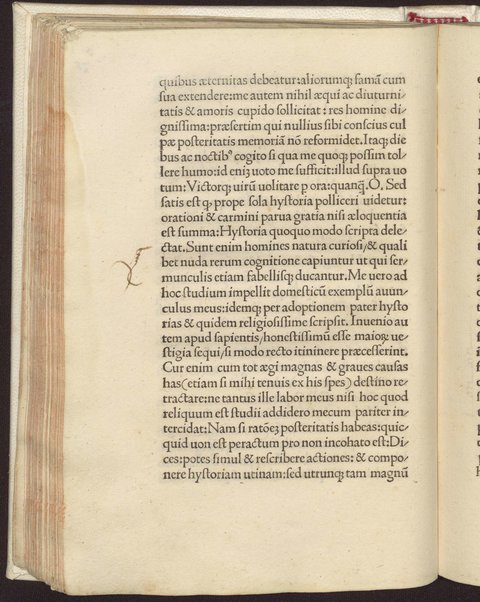 quibus æternitas debeatur:aliorumqꝫ famã cum
sua extendere:me autem nihil æqui ac diuturni⸗
tatis & amoris cupido sollicitat : res homine di⸗
gnissima:præsertim qui nullius sibi conscius cul
pæ posteritatis memoriã nõ reformidet.Itaqꝫ die
bus ac noctibꝰ cogito si qua me quoqꝫ possim tol⸗
lere humo:id eniꝫ uoto me sufficit:illud supra uo
tum:Victorqꝫ uirũ uolitare p ora:quanq̃.O, Sed
satis est qꝫ prope sola hystoria polliceri uidetur:
orationi & carmini parua gratia nisi æloquentia
est summa:Hystoria quoquo modo scripta dele⸗
ctat.Sunt enim homines natura curiosi/& quali
bet nuda rerum cognitione capiuntur ut qui ser⸗
munculis etiam fabellisqꝫ ducantur.Me uero ad
hoc studium impellit domesticũ exemplũ auun⸗
culus meus:idemqꝫ per adoptionem pater hysto
rias & quidem religiosissime scripsit. Inuenio au
tem apud sapientis/honestissimũ esse maioꝝ ue⸗
stigia sequi/si modo recto itininere præcesserint.
Cur enim cum tot ægi magnas & graues causas
has(etiam si mihi tenuis ex his spes) destino re⸗
tractare:ne tantus ille labor meus nisi hoc quod
reliquum est studii addidero mecum pariter in⸗
tercidat:Nam si ratõeꝫ posteritatis habeas:quic⸗
quid uon est peractum pro non incohato est:Di⸗
ces:potes simul & rescribere actiones: & compo⸗
nere hystoriam utinam:sed utrunqꝫ tam magnũ